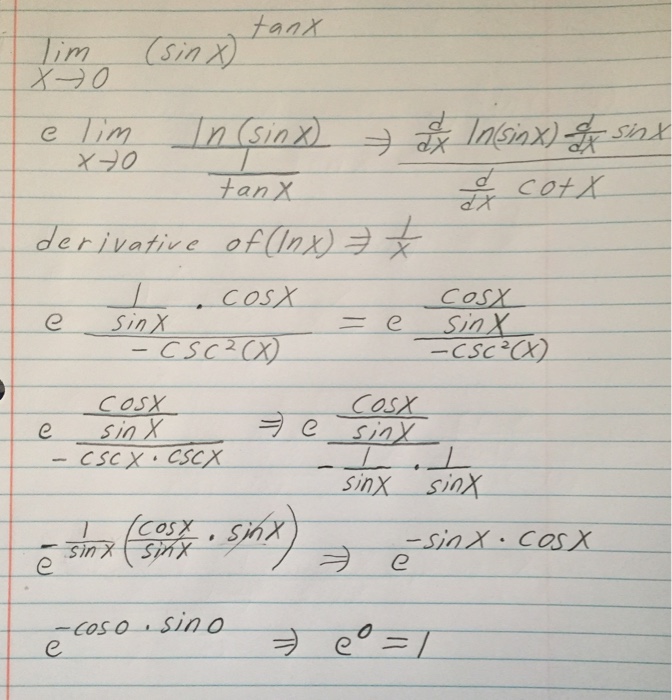 lim x→0 (sin x)^tanx
e lim x→0 ln(sinx) / (1 / tanx) ⇒ d/dx ln(sinx) d/dx sinx / d/dx cotx
derivative of (lnx) ⇒ 1/x
e (1/sinx · cosx) / -csc²(x) = e (cosx / sinx) / -csc²(x)
e (cosx / sinx) / -cscx · cscx ⇒ e (cosx / sinx) / -1/sinx · 1/sinx
e^-1/sinx (cosx/sinx · sinx) ⇒ e^-sinx · cosx
e^-cos0 · sin0 ⇒ e^0 = 1